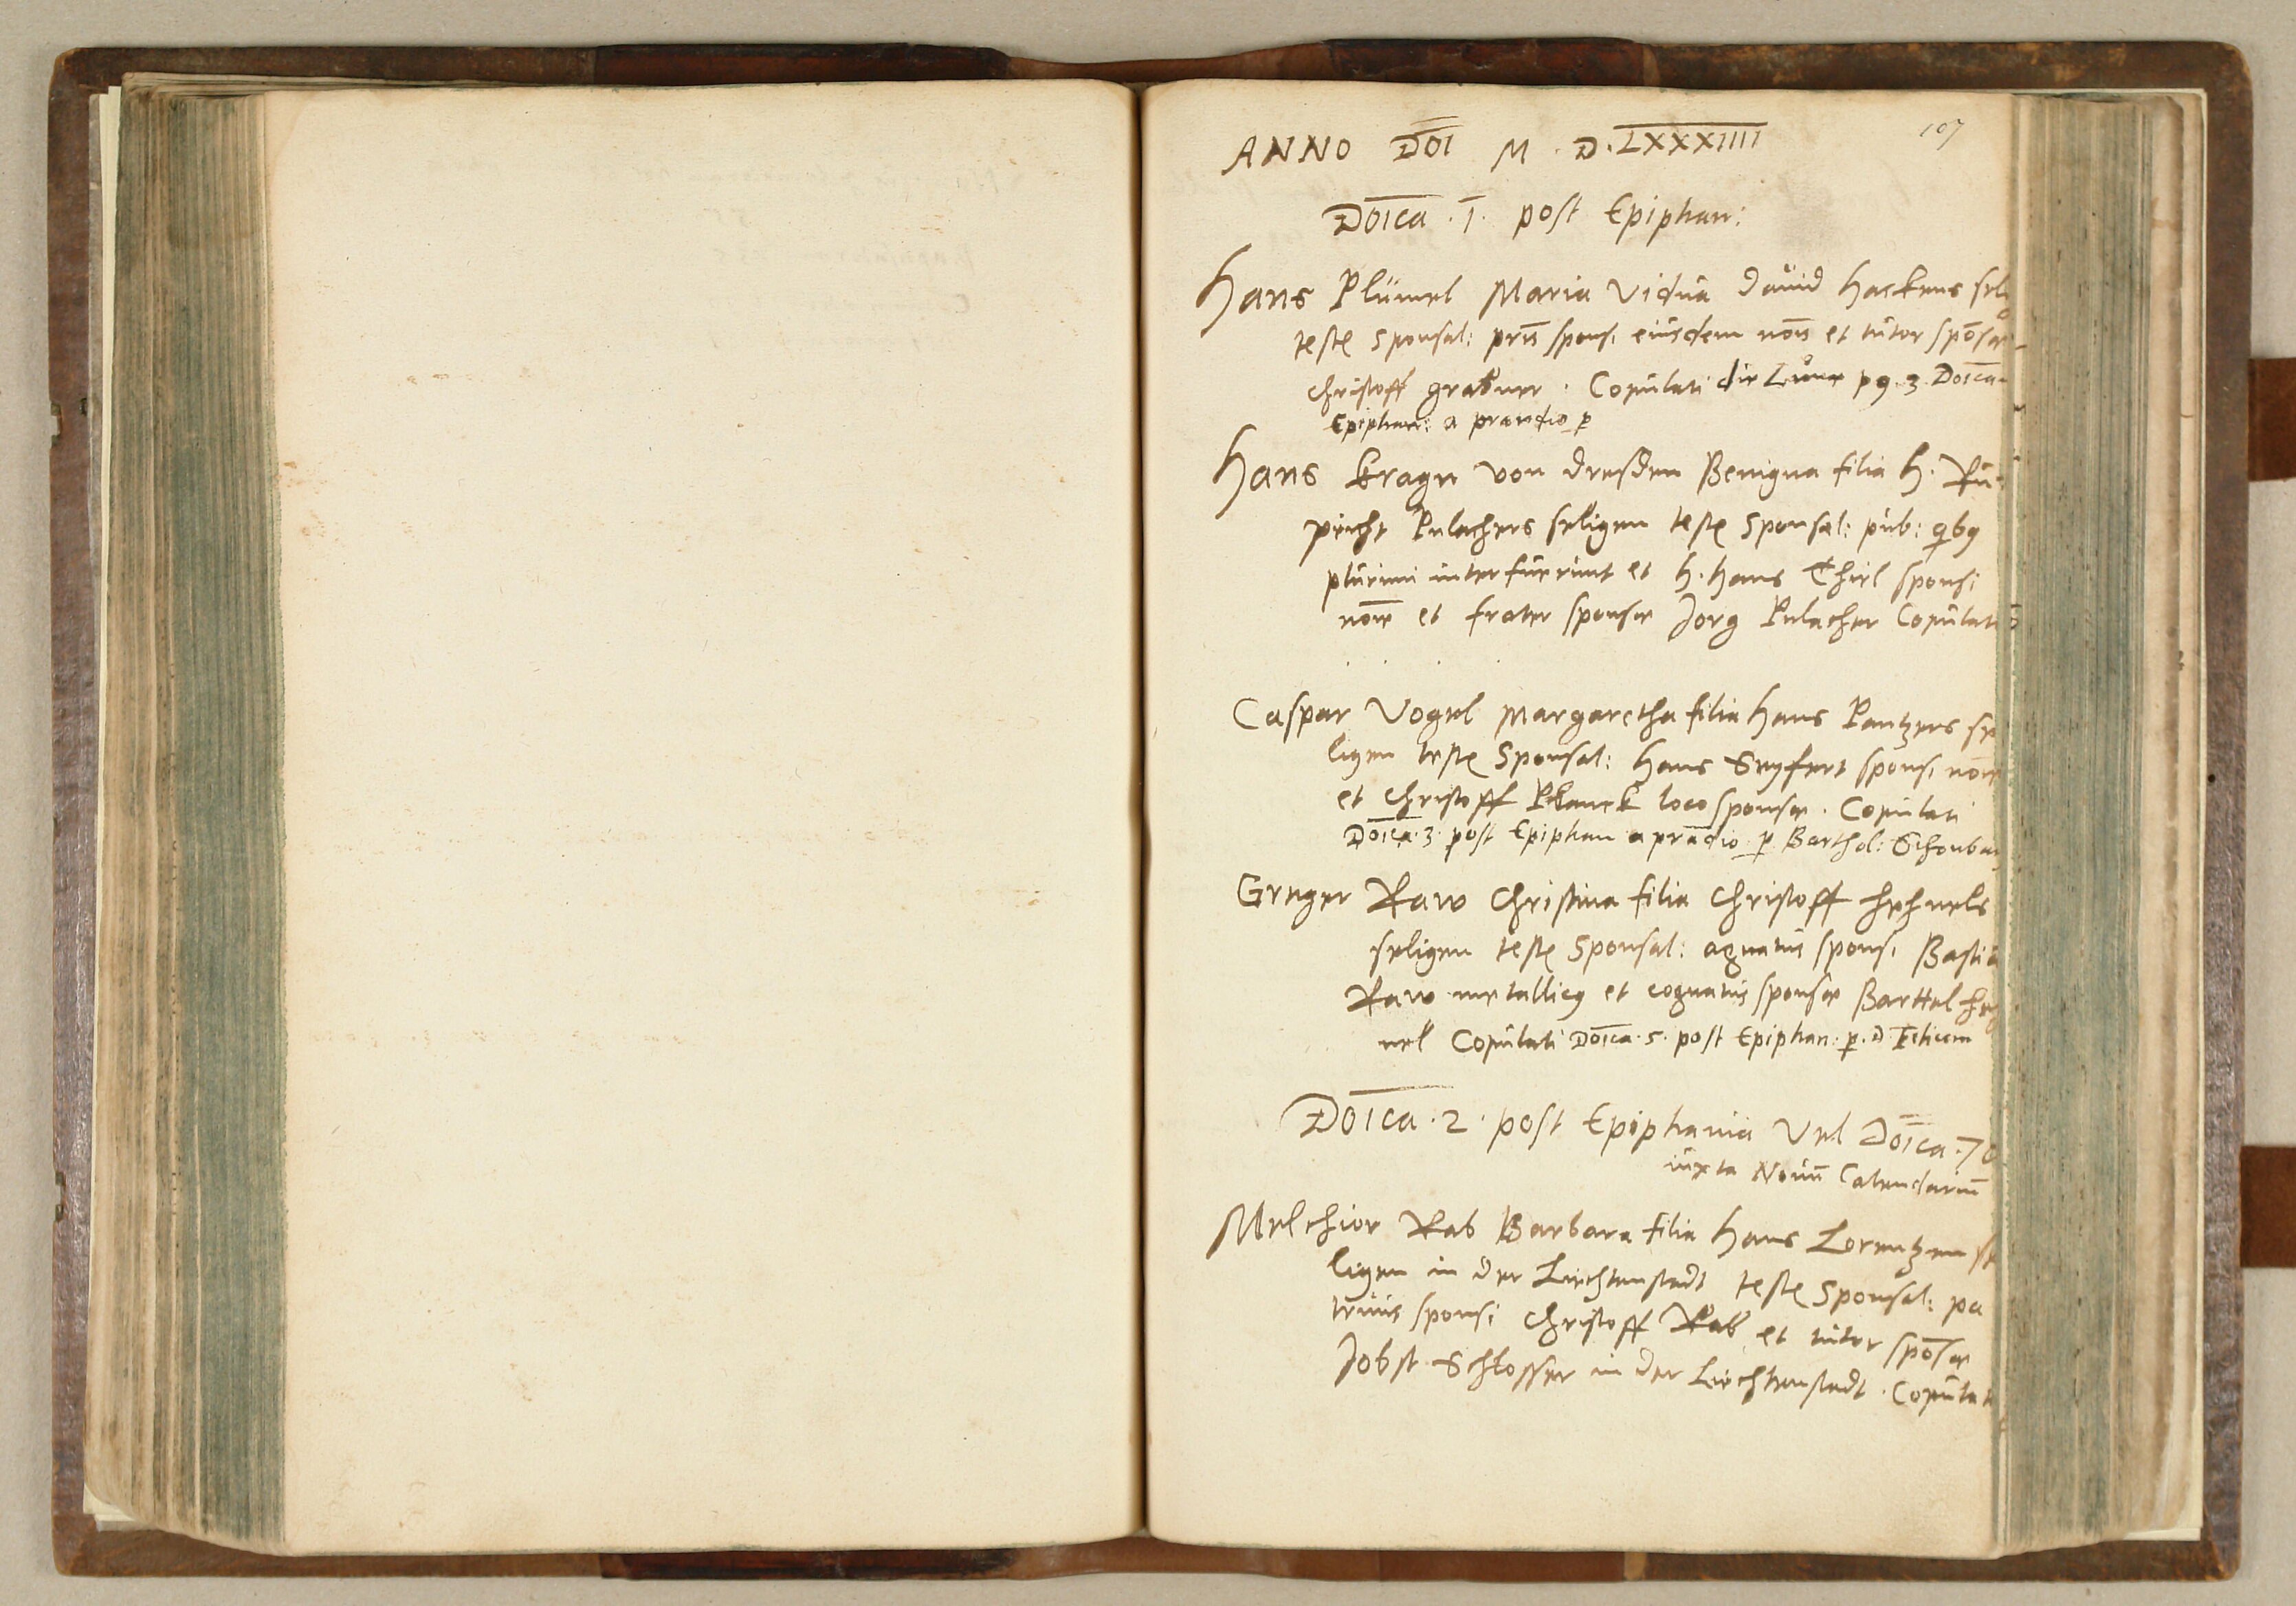 107
ANNO DOI M . D . LXXXIIII
Doica . 1 . post Epiphan:
Hans Plümel Maria Vidua David Hackens
testes Sponsal: spons. eiusdem nois et tutor spōsæ
Christoff grabner . Copulati die Lunæ p9 . 3 . Doicā
Epiphan: a prandio p
Hans kragn von dresden Benigna filia H. Ru-
Pulachers seligen testes Sponsal: pub: qb9
plurimi interfuerunt et H. Hans Thirl sponsi
noīe et frater sponsæ Jorg Pulacher Copulati
Caspar Vogel Margaretha filia Hans Pantzers se
ligen testes Sponsal: Hans Seyfert sponsi noīe
et Christoff Planck loco sponsæ . Copulati
Doica . 3 . post Epiphan a prādio p Barthol:
Greger Raw Christina filia Christoff Hehnels
seligen testes Sponsal: agnatus sponsi Bastiā
Raw metallic9 et cognatus sponsæ Barttel Heh
nel Copulati Doica . 5 . post Epiphan: p . D Felicem
Doica . 2 . post Epiphaniā Vel Doica . 70
iuxta Novū Calendariū
Melchior Rab Barbara filia Hans Lorentzen se
ligen in der Liechtenstadt testes Sponsal: pa
truus sponsi Christoff Rab et tutor spōsæ
Jobst Schlosser in der Liechtenstadt . Copulati